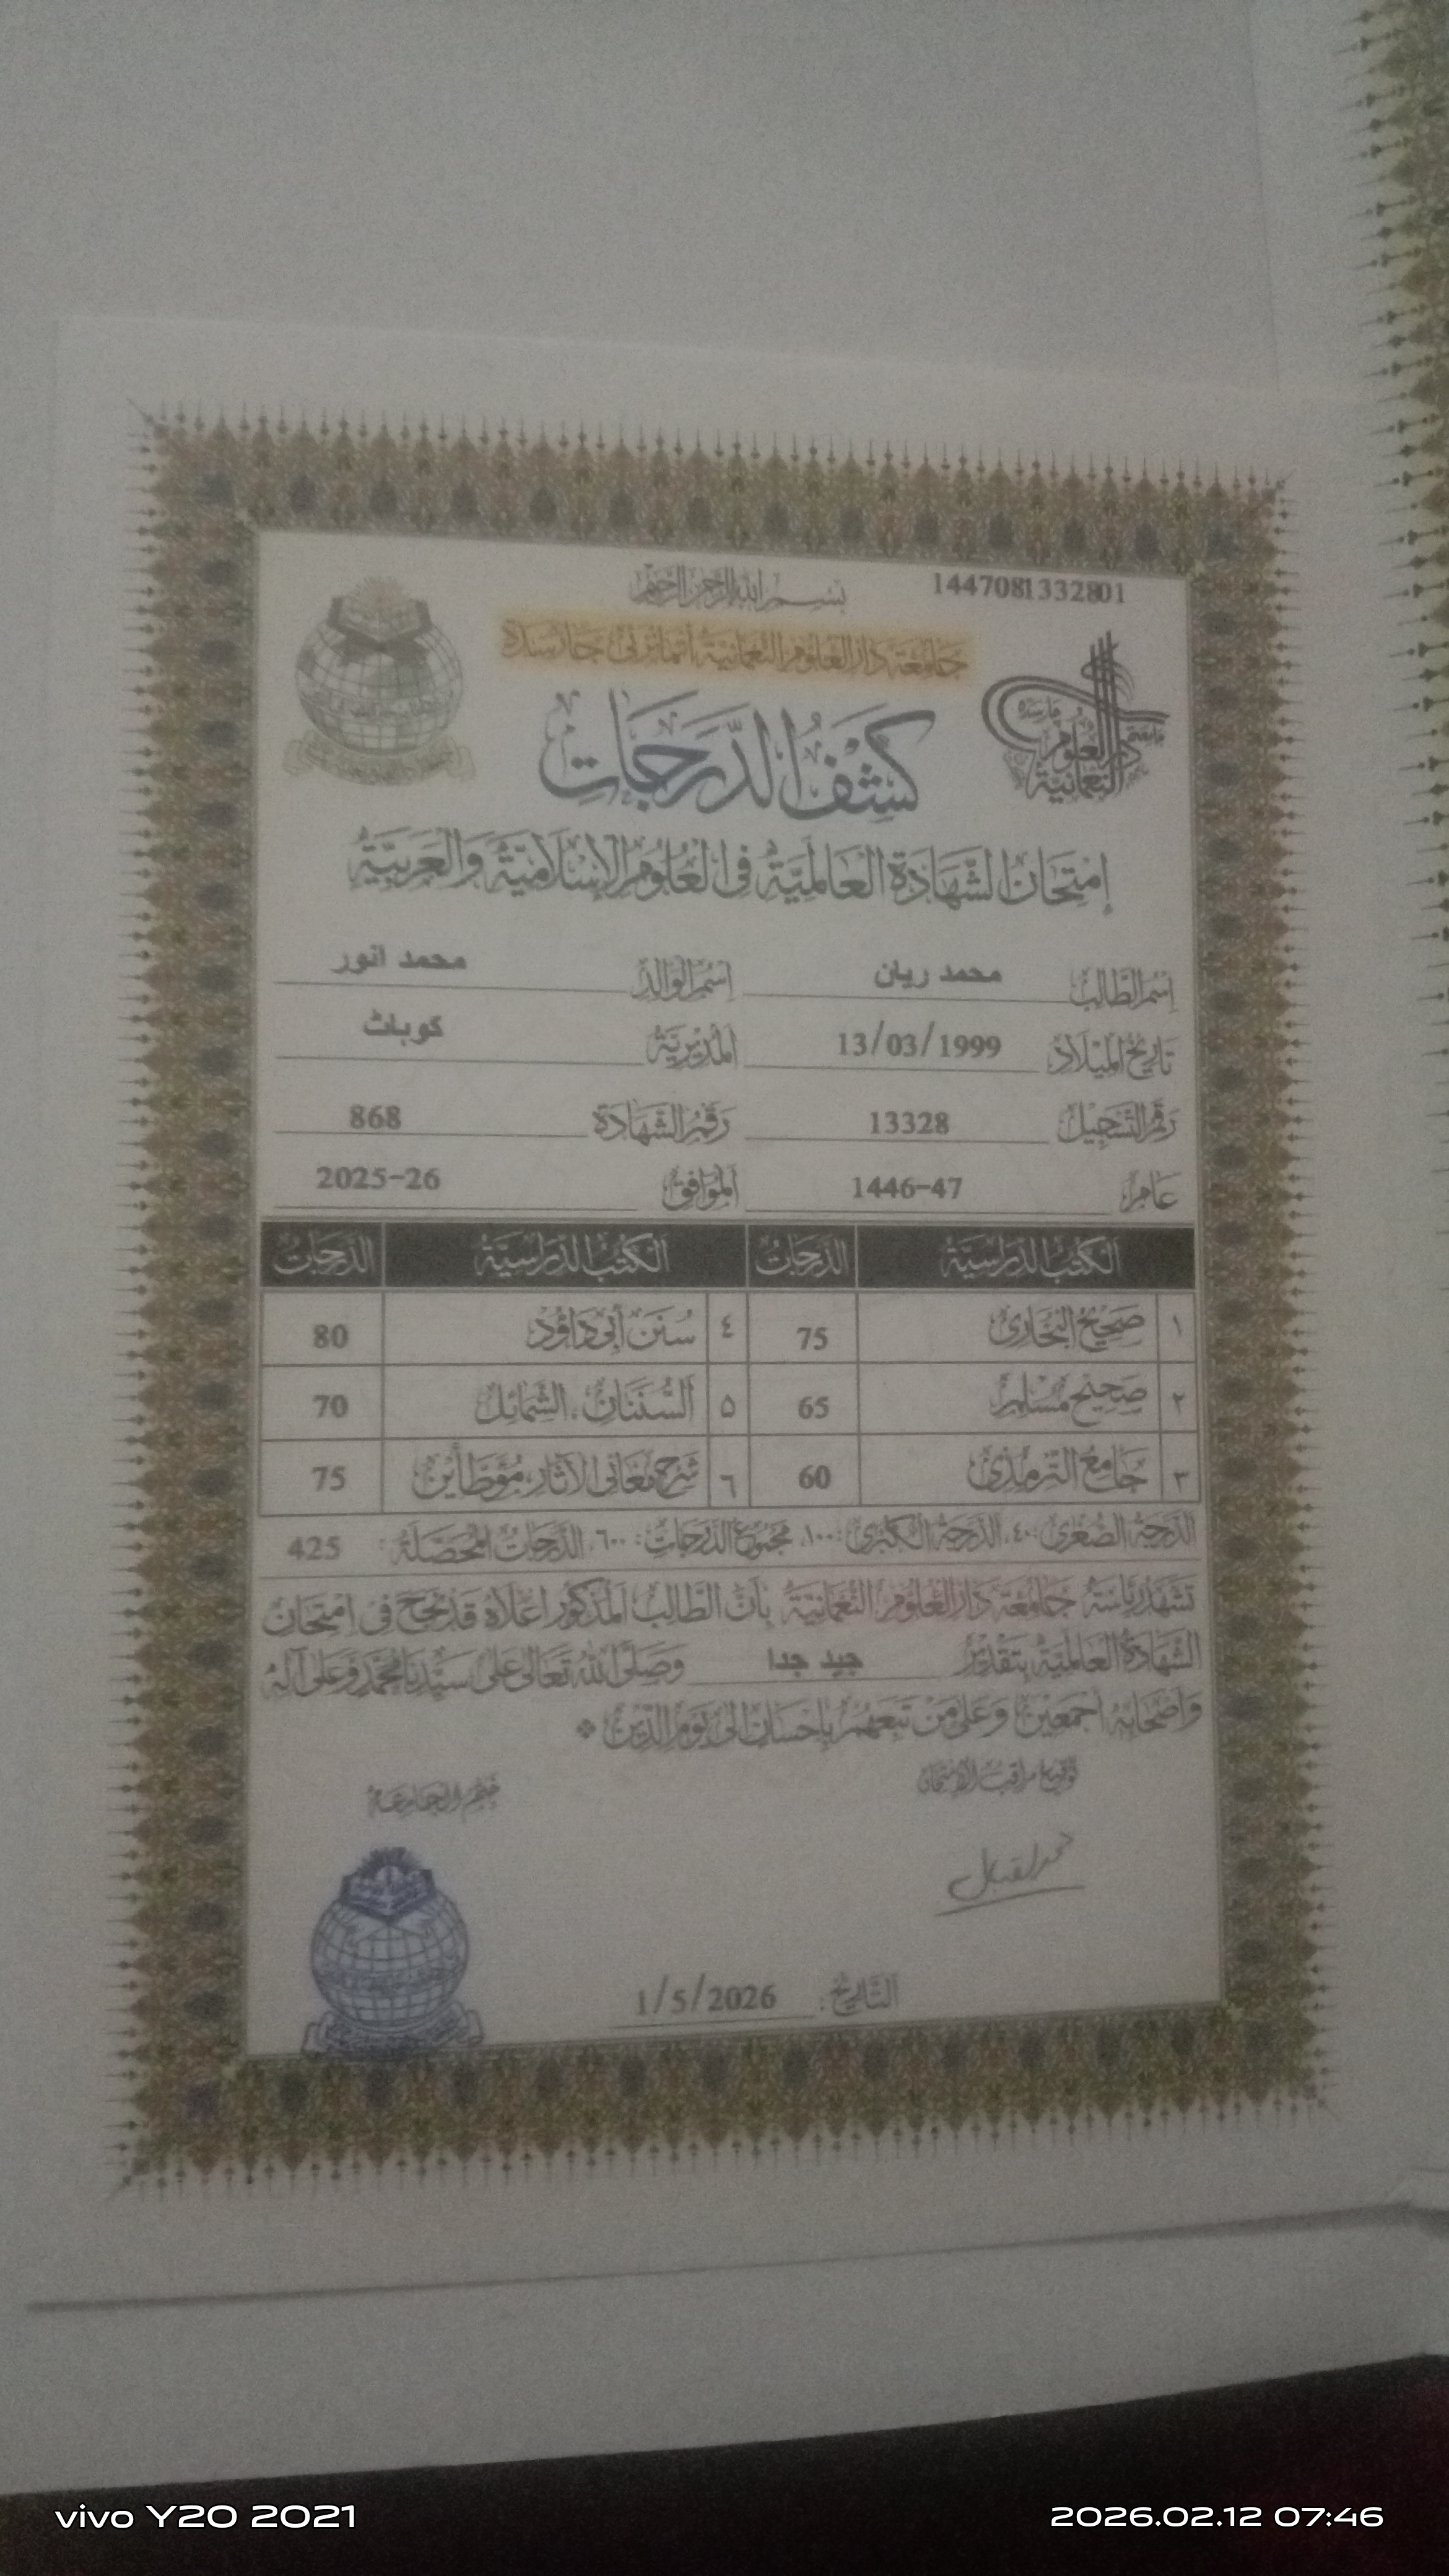 1447081332801
بسم الله الرحمن الرحيم
جامعة دار العلوم النعمانية اتمانزئی چارسدة
جامعة دار العلوم النعمانية
كشف الدرجات
إمتحان الشهادة العالمية في العلوم الإسلامية والعربية
اسم الطالب محمد ريان اسم الوالد محمد انور
تاريخ الميلاد 13/03/1999 المديرية كوهاٹ
رقم التسجيل 13328 رقم الشهادة 868
عام 1446-47 الموافق 2025-26
الكتب الدراسية الدرجات الكتب الدراسية الدرجات
١ صحيح البخاری 75 ٤ سنن أبی داؤد 80
٢ صحيح مسلم 65 ٥ السننان، الشمائل 70
٣ جامع الترمذی 60 ٦ شرح معانی الآثار، مؤطأين 75
الدرجة الصغرى: ٤٠، الدرجة الكبرى: ١٠٠، مجموع الدرجات: ٦٠٠، الدرجات المحصلة: 425
تشهد رئاسة جامعة دار العلوم النعمانية بأن الطالب المذكور اعلاه قد نجح فى امتحان
الشهادة العالمية بتقدير جيد جدا وصلى الله تعالى على سيدنا محمد وعلى آله
وأصحابه أجمعين وعلى من تبعهم بإحسان الى يوم الدين
توقيع مراقب الامتحان ختم الجامعة
محمد اقبال
التاريخ: 1/5/2026
vivo Y20 2021 2026.02.12 07:46